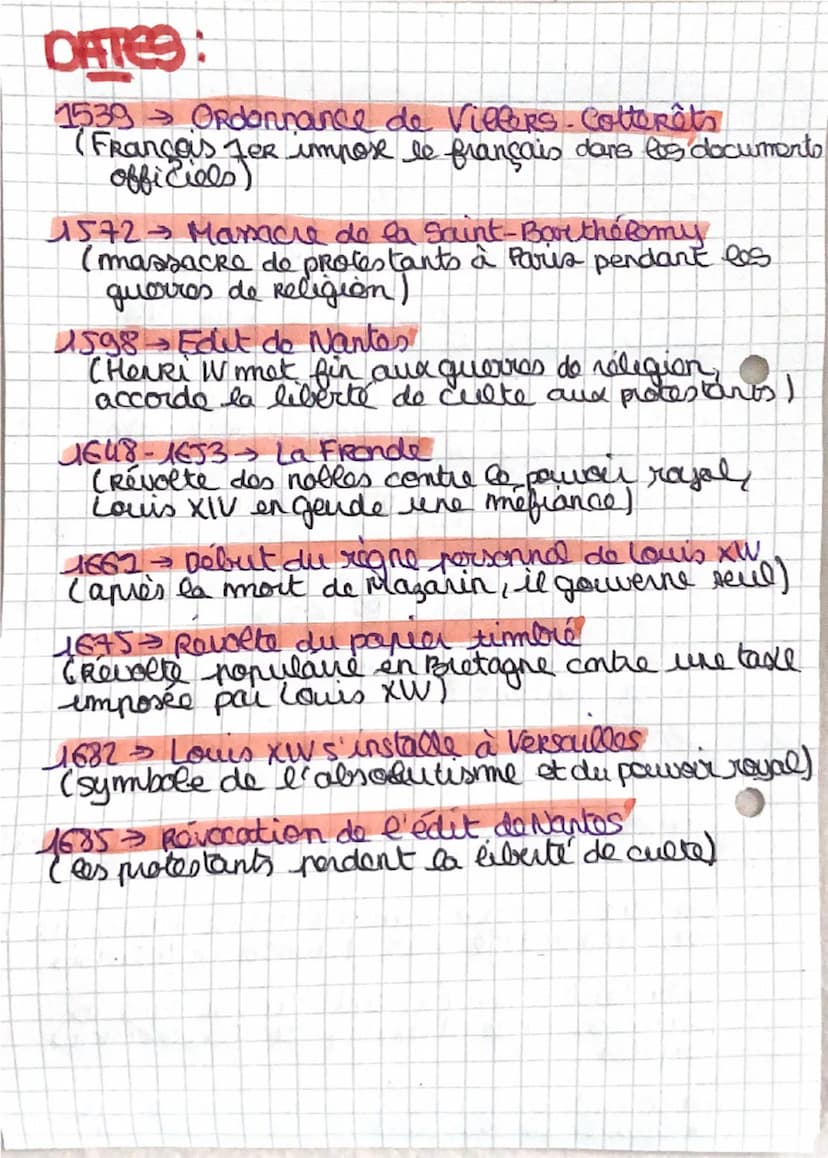 DATES :
1539 → Ordonnance de Villers-Cotterêts
(François 1er impose le français dans les documents
officiels)
1572 → Massacre de la Saint-Barthélomy
(massacre de protestants à Paris pendant les
guerres de religion)
1598 → Edit de Nantes
(Henri IV met fin aux guerres de réligion,
accorde la liberté de culte aux protestants)
1648-1653 → La Fronde
(Révolte des nobles contre le pouvoir royal,
Louis XIV engeude une méfiance)
1662 → Début du règne personnel de Louis XIV
(après la mort de Mazarin, il gouverne seul)
1675 → Révolte du papier timbré
(Révolte populaire en Bretagne contre une taxe
imposée par Louis XIV)
1682 → Louis XIV s'installe à Versailles
(symbole de l'absolutisme et du pouvoir royal)
1685 → Révocation de l'édit de Nantes
(les protestants perdent la liberté de culte)